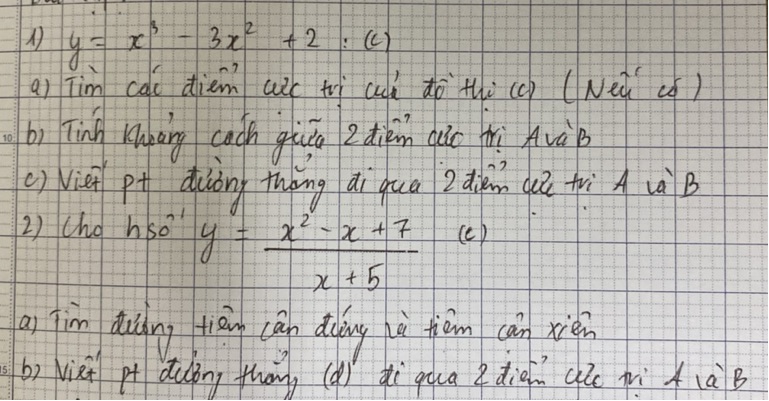 1) y = x³ - 3x² + 2 : (C)
a) Tìm các điểm cực trị của đồ thị (C) (Nếu có)
b) Tính khoảng cách giữa 2 điểm cực trị A và B
c) Viết pt đường thẳng đi qua 2 điểm cực trị A và B
2) Cho hsố y = (x² - x + 7)/(x + 5) (C)
a) Tìm đường tiệm cận đứng và tiệm cận xiên
b) Viết pt đường thẳng (d) đi qua 2 điểm cực trị A và B